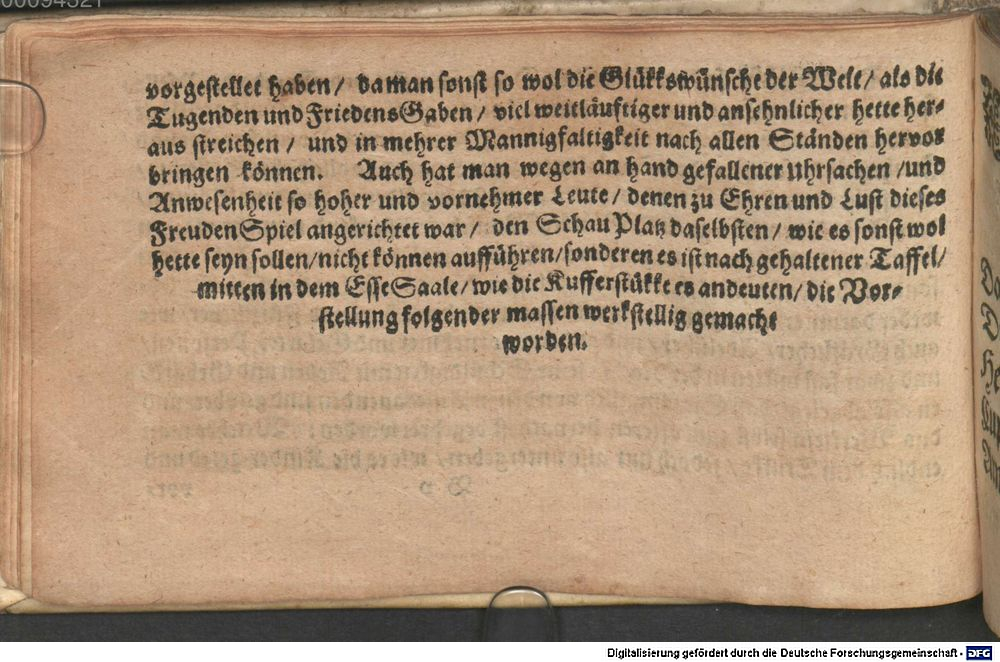 00094521
vorgestellet haben / da man sonst so wol die Glükkswünsche der Welt / als die
Tugenden und FriedensGaben / viel weitläuftiger und ansehnlicher hette her-
aus streichen / und in mehrer Mannigfaltigkeit nach allen Ständen hervor
bringen können. Auch hat man wegen an hand gefallener Uhrsachen / und
Anwesenheit so hoher und vornehmer Leute / denen zu Ehren und Lust dieses
FreudenSpiel angerichtet war / den SchauPlatz daselbsten / wie es sonst wol
hette seyn sollen / nicht können aufführen / sonderen es ist nach gehaltener Taffel /
mitten in dem EsseSaale / wie die Kufferstükke es andeuten / die Vor-
stellung folgender massen werkstellig gemacht
worden.
Digitalisierung gefördert durch die Deutsche Forschungsgemeinschaft - DFG